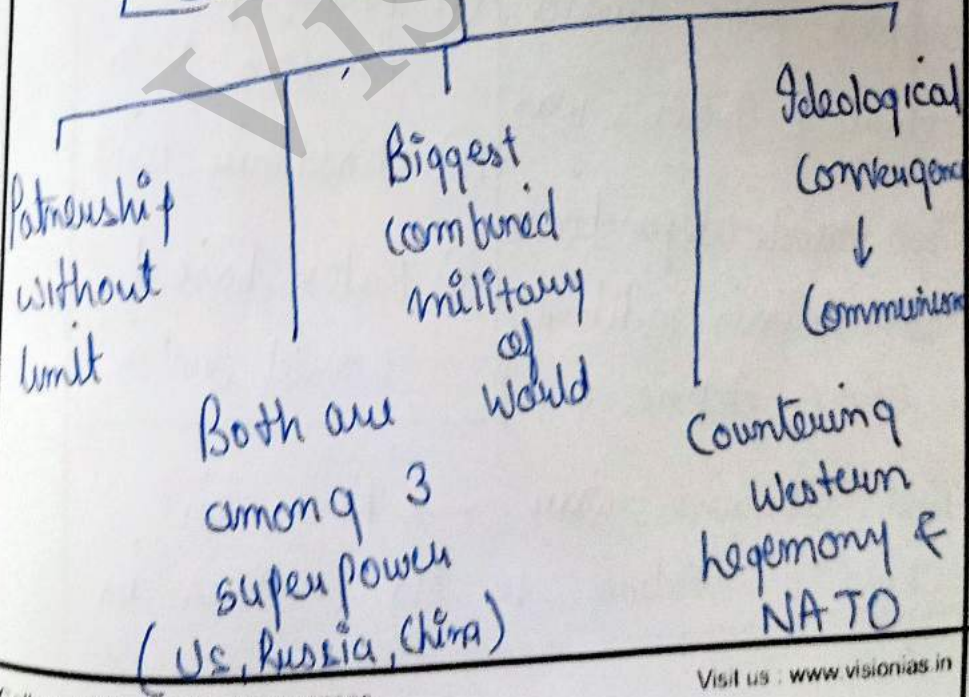 Patnership
without
limit
Both are
among 3
superpower
(US, Russia, China)
Biggest
combined
military
of
World
Countering
Western
hegemony &
NATO
Ideological
Convergence
↓
Communism
Visit us : www.visionias.in